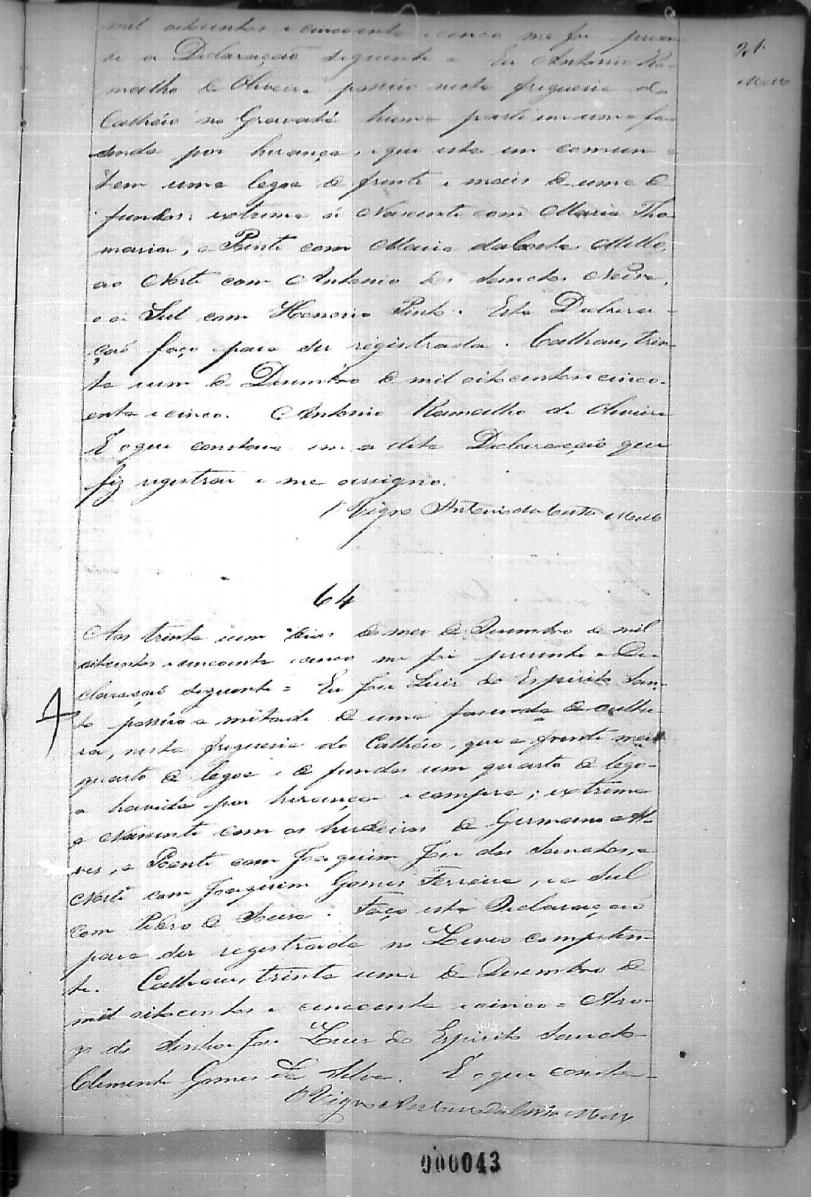 mil oitocentos e cincoenta e cinco me foi presen-
te a Declaração seguinte = Eu Antonio Ra-
malho de Oliveira possúo nesta freguesia do
Calháo no Gravatá huma parte em uma fa-
senda por herança, e que esta em comun e
tem uma legoa de frente e mais de uma de
fundos: extrema á Nascente com Maria Tho
masia, a Poente com Maria da Costa Mello,
ao Norte com Antonio dos Sanctos
e a Sul com Honorio Pinto. Esta Declara-
çaõ faço para ser registrada. Calhau, trin-
ta e um de Desembro de mil oitocentos e cinco-
enta e cinco. Antonio Ramalho de Oliveira
É o que constava em a dita Declaração que
fiz registrar e me assigno.
O Vigro Antonio da Costa Mello
64
Aos trinta e um dias do mez de Desembro de mil
oitocentos e cincoenta e cinco me foi presente a De-
claraçaõ seguinte = Eu José Luis do Espirito San-
to possúo a mitade de uma fasenda de cultu-
ra, nesta freguesia do Calháo, que a frente
quarto de legoa e de fundos um quarto de lego-
a havida por herança e compra; extrema
a Nascente com os herdeiros de Germano Al-
ves, a Poente com Joaquim José dos Sanctos, a
Norte com Joaquim Gomes Ferreira, e a Sul
com Pedro de Sousa. Faço esta Declaraçaõ
para ser registrada no Livro competen-
te. Calhau, trinta e um de Desembro de
mil oitocentos e cincoenta e cinco = Aro-
go do Senhor José Luis do Espirito Sancto
Clemente Gomes da Silva. É o que consta-
O Vigro Antonio da Costa Mello
21
Mello
000043